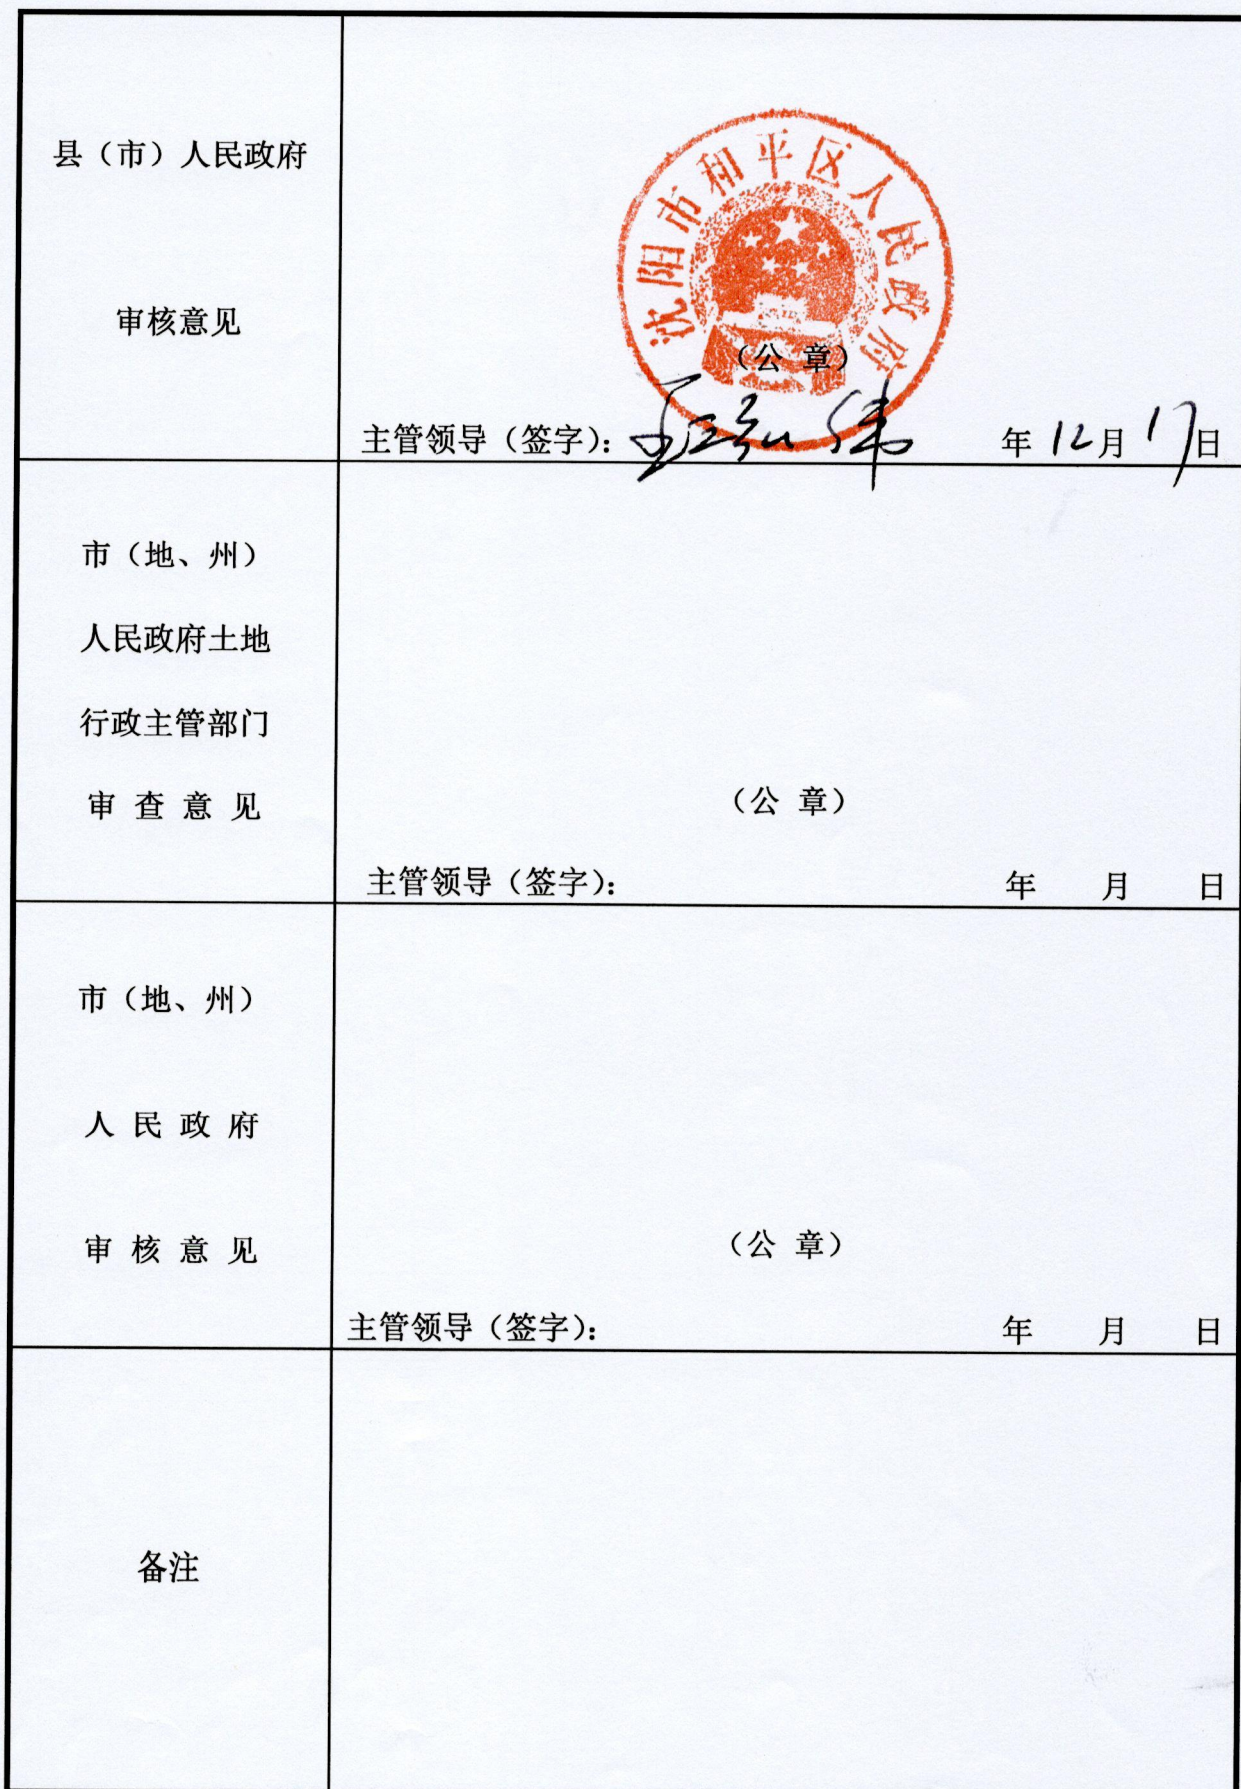 县（市）人民政府
审核意见
沈阳市和平区人民政府
（公 章）
主管领导（签字）： 年 12月 17日
市（地、州）
人民政府土地
行政主管部门
审 查 意 见
（公 章）
主管领导（签字）： 年 月 日
市（地、州）
人 民 政 府
审 核 意 见
（公 章）
主管领导（签字）： 年 月 日
备注